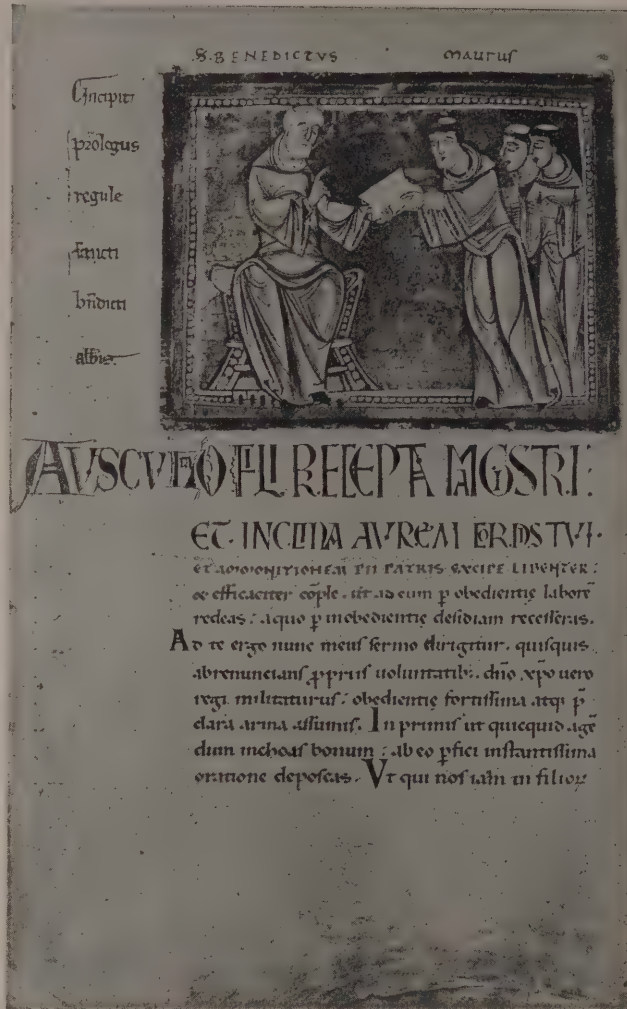 S. BENEDICTVS MAURUS
Incipit
prologus
regule
sancti
bñdicti
abbis
AVSCVLTA O FILI PRECEPTA MAGISTRI:
ET INCLINA AVREM CORDIS TVI.
ET AMMONITIONEM PII PATRIS EXCIPE LIBENTER:
& efficaciter cõple. ut ad eum p obedientię laborẽ
redeas: a quo p inobedientię desidiam recesseras.
Ad te ergo nunc meus sermo dirigitur. quisquis
abrenuncians ꝓpriis uoluntatib;. dño xp̃o uero
regi militaturus: obedientię fortissima atq; p̃
clara arma assumis. In primis ut quicquid agẽ
dum inchoas bonum: ab eo ꝑfici instantissima
oratione deposcas. Vt qui nos iam in filioꝝ